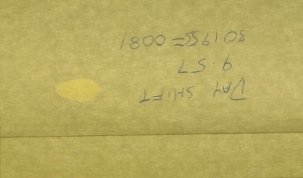 DAY SHIFT
9.57
301955=0081